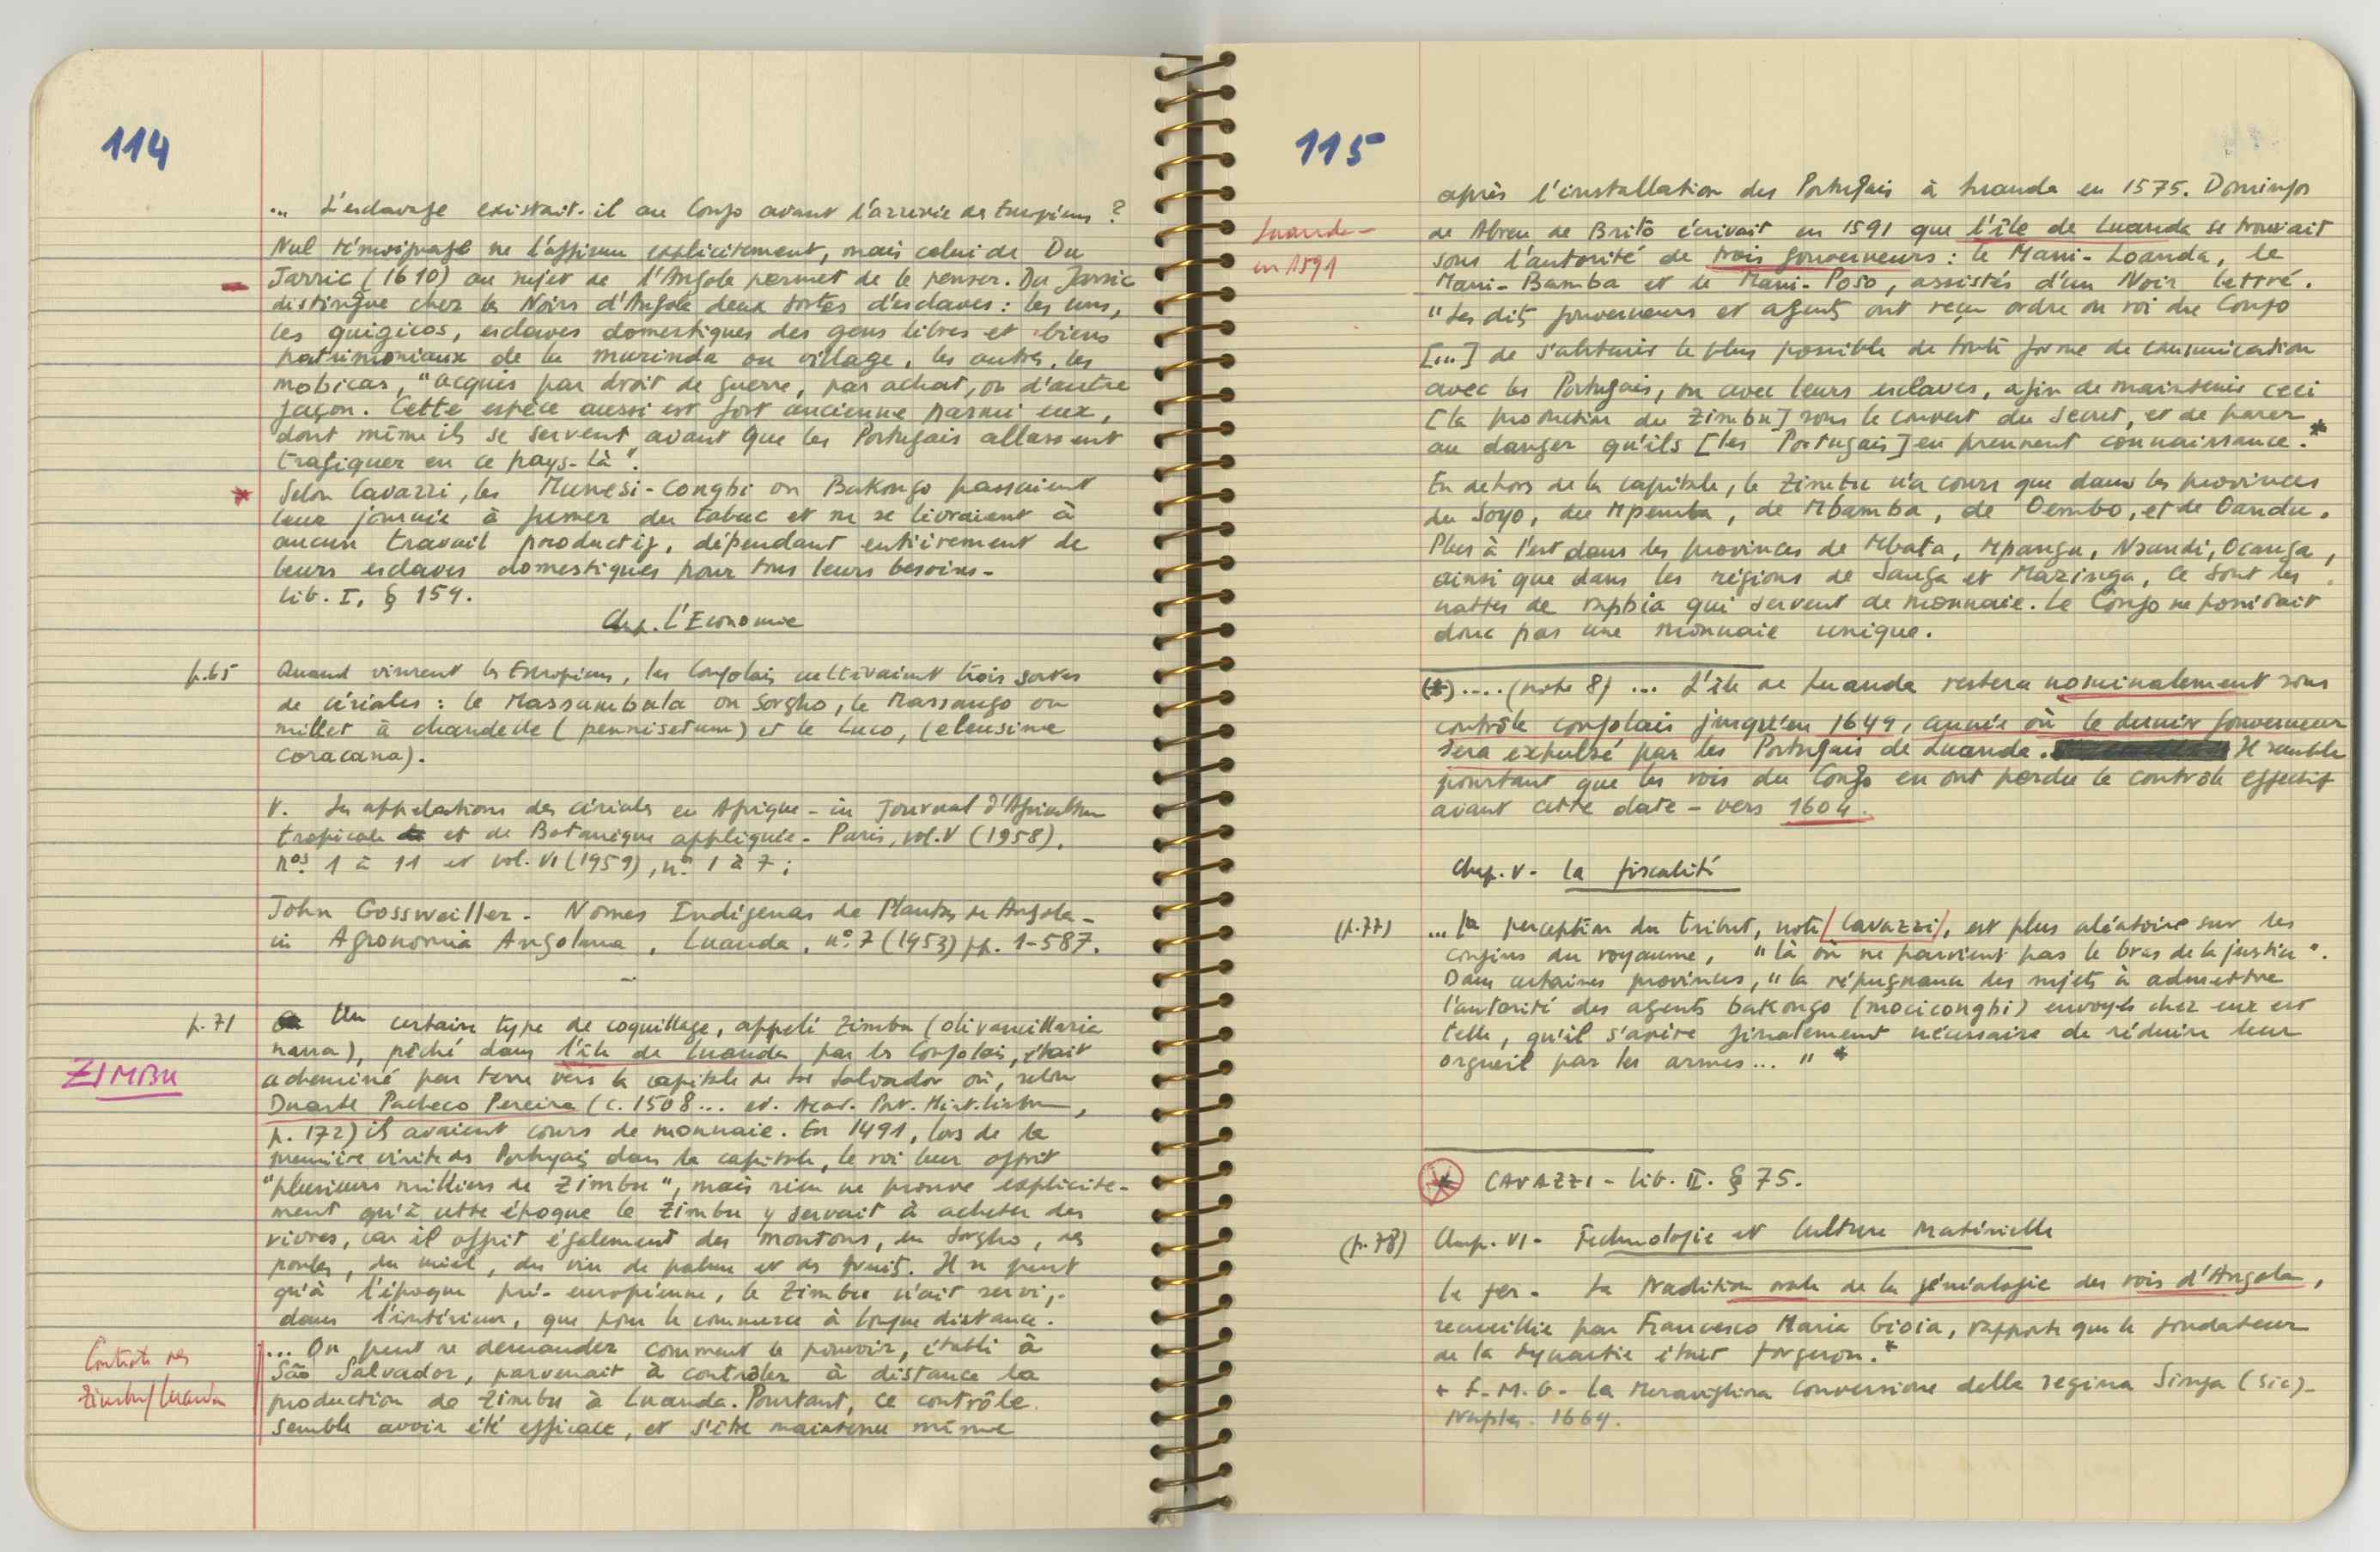 114
... L'esclavage existait-il au Congo avant l'arrivée des Européens ?
Nul témoignage ne l'affirme explicitement, mais celui de Du
Jarric (1610) au sujet de l'Angola permet de le penser. Du Jarric
distingue chez les Noirs d'Angola deux sortes d'esclaves : les uns,
les quigicos, esclaves domestiques des gens libres et biens
patrimoniaux de la murinda ou village, les autres, les
mobicas, "acquis par droit de guerre, par achat, ou d'autre
façon. Cette espèce aussi est fort ancienne parmi eux,
dont même ils se servent avant que les Portugais allassent
trafiquer en ce pays-là".
* Selon Cavazzi, les Munesi-Conghi ou Bakongo passaient
leur journée à fumer du tabac et ne se livraient à
aucun travail productif, dépendant entièrement de
leurs esclaves domestiques pour tous leurs besoins-
lib. I, § 159.
Chap. L'Economie
p.65 Quand vinrent les Européens, les Congolais cultivaient trois sortes
de céréales : le Massambala ou Sorgho, le Massango ou
millet à chandelle (pennisetum) et le Luco, (eleusine
coracana).
V. Les appelations des céréales en Afrique - in Journal d'Agriculture
tropicale et de Botanique appliquée - Paris, vol. V (1958),
nos 1 à 11 et vol. VI (1959), nº 1 à 7 ;
John Gossweiller - Nomes Indígenas de Plantas de Angola -
in Agronomia Angolana, Luanda, nº 7 (1953) pp. 1-587.
p.71 Un certain type de coquillage, appelé Zimbu (olivancillaria
nana), pêché dans l'île de Luanda par les Congolais, était
ZIMBU
acheminé par terre vers la capitale de São Salvador où, selon
Duarte Pacheco Pereira (c. 1508... ed. Acad. Port. Hist. Lisbon,
p. 172) ils avaient cours de monnaie. En 1491, lors de la
première visite des Portugais dans la capitale, le roi leur offrit
"plusieurs milliers de Zimbu", mais rien ne prouve explicite-
ment qu'à cette époque le Zimbu y servait à acheter des
vivres, car il offrit également des moutons, du sorgho, des
poules, du miel, du vin de palme et des fruits. Il se peut
qu'à l'époque pré-européenne, le Zimbu n'ait servi,
dans l'intérieur, que pour le commerce à longue distance.
Contrôle des
Zimbu/Luanda
... On peut se demander comment le pouvoir, établi à
São Salvador, parvenait à contrôler à distance la
production de Zimbu à Luanda. Pourtant, ce contrôle
semble avoir été efficace, et s'être maintenu même
115
après l'installation des Portugais à Luanda en 1575. Domingos
Luanda -
en 1591
de Abreu de Brito écrivait en 1591 que l'île de Luanda se trouvait
sous l'autorité de trois gouverneurs : le Mani-Loanda, le
Mani-Bamba et le Mani-Poso, assistés d'un Noir lettré.
"Les dits gouverneurs et agents ont reçu ordre du roi du Congo
[...] de s'abstenir le plus possible de toute forme de communication
avec les Portugais, ou avec leurs esclaves, afin de maintenir ceci
[la production du Zimbu] sous le couvert du secret, et de parer
au danger qu'ils [les Portugais] en prennent connaissance." *
En dehors de la capitale, le Zimbu n'a cours que dans les provinces
du Soyo, du Mpemba, de Mbamba, de Dembo, et de Oandu.
Plus à l'est dans les provinces de Mbata, Mpangu, Nsundi, Ocanga,
ainsi que dans les régions de Sanga et Mazinga, ce sont les
nattes de raphia qui servent de monnaie. Le Congo ne possédait
donc pas une monnaie unique.
(*) .... (note 8) ... L'île de Luanda restera nominalement sous
contrôle congolais jusqu'en 1649, année où le dernier gouverneur
sera expulsé par les Portugais de Luanda. Il semble
pourtant que les rois du Congo en ont perdu le contrôle effectif
avant cette date - vers 1604.
Chap. V - La fiscalité
(p.77) ... la perception du tribut, note /Cavazzi/, est plus aléatoire sur les
confins du royaume, "là où ne parvient pas le bras de la justice".
Dans certaines provinces, "la répugnance des sujets à admettre
l'autorité des agents bakongo (mociconghi) envoyés chez eux est
telle, qu'il s'avère finalement nécessaire de réduire leur
orgueil par les armes... " *
* CAVAZZI - lib. II. § 75.
(p.78) Chap. VI - Technologie et Culture Matérielle
Le fer - La tradition orale de la généalogie des rois d'Angola,
recueillie par Francesco Maria Gioia, rapporte que le fondateur
de la dynastie était forgeron. *
+ F.M.G. - La Meravigliosa Conversione della regina Singa (sic) -
Naples. 1669.